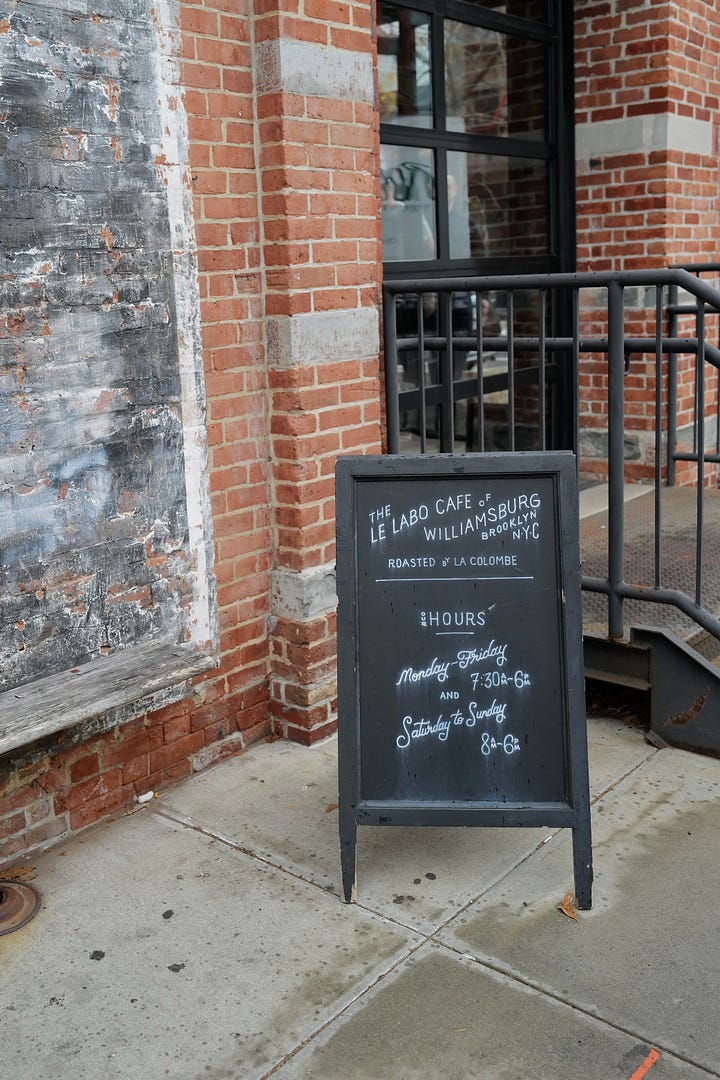 THE
LE LABO CAFE OF
WILLIAMSBURG
BROOKLYN
N.Y.C
ROASTED BY LA COLOMBE
OUR HOURS
Monday-Friday
7:30AM-6PM
AND
Saturday to Sunday
8AM-6PM